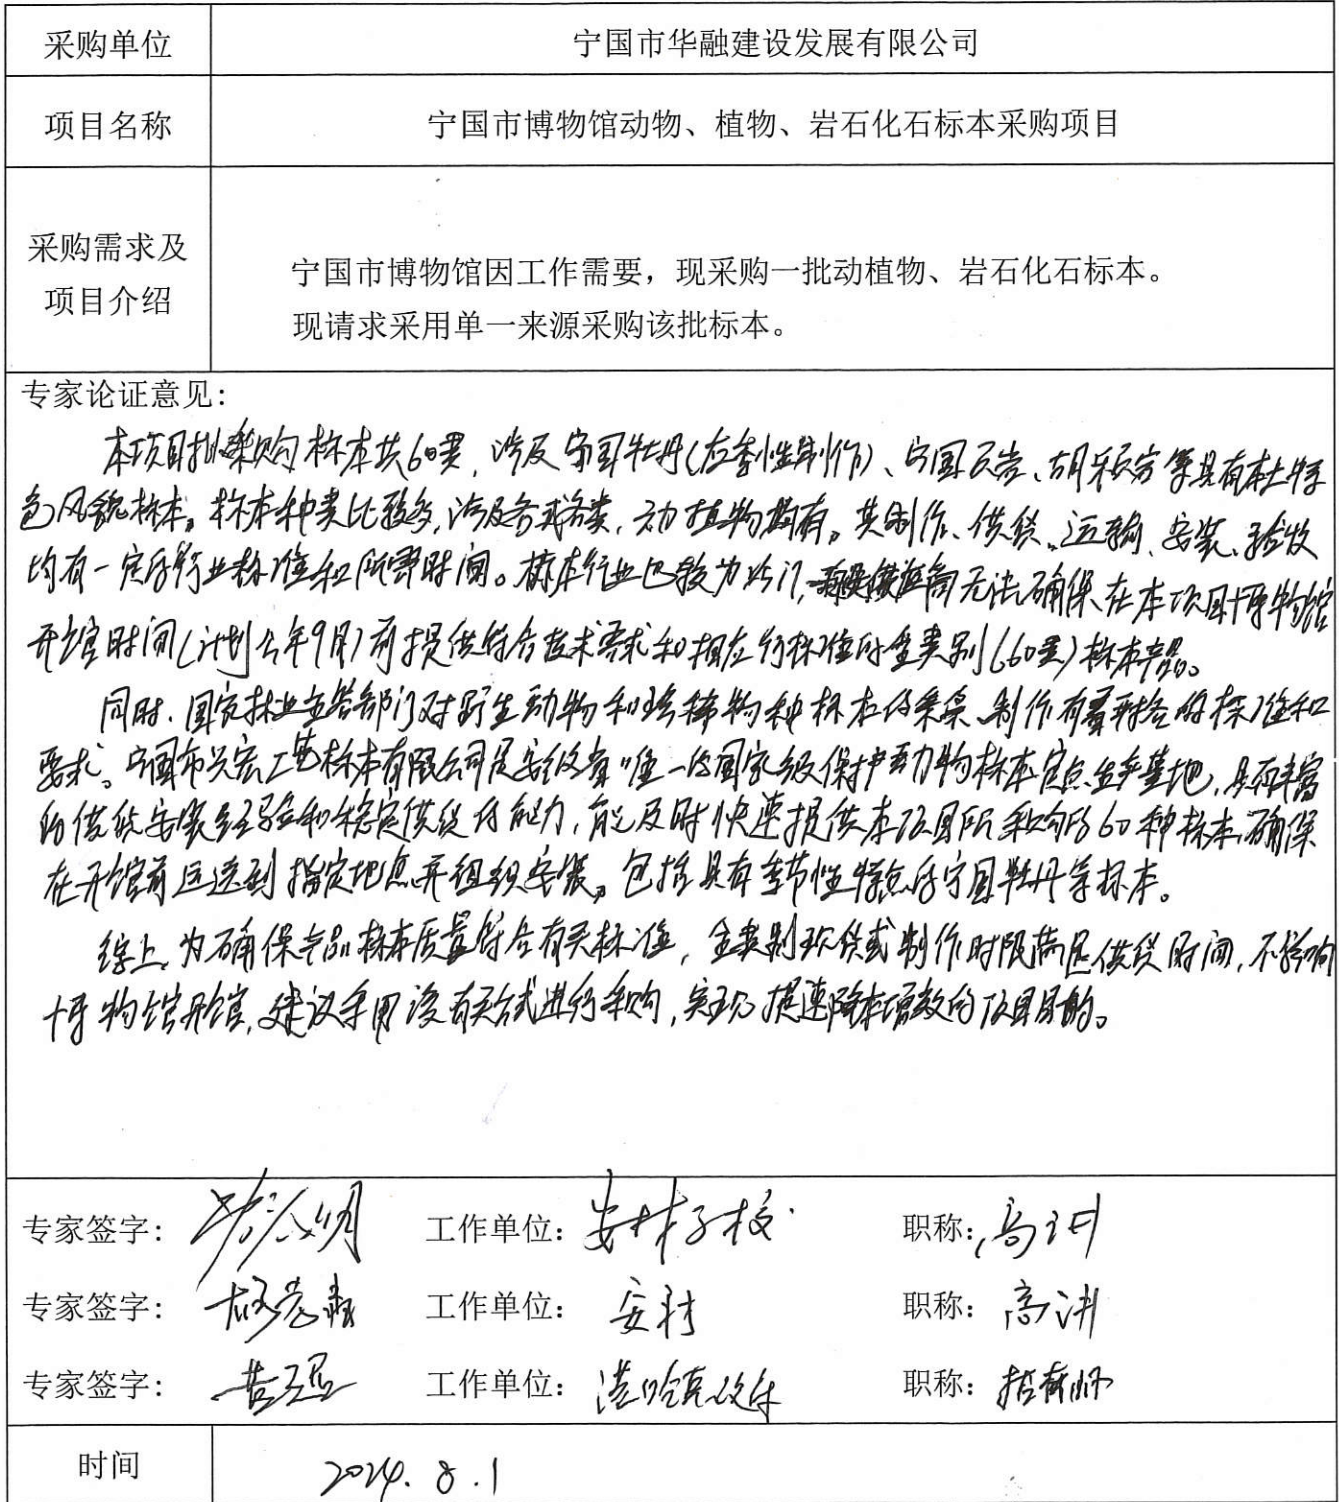 采购单位 宁国市华融建设发展有限公司
项目名称 宁国市博物馆动物、植物、岩石化石标本采购项目
采购需求及
项目介绍
宁国市博物馆因工作需要，现采购一批动植物、岩石化石标本。
现请求采用单一来源采购该批标本。
专家论证意见：
本项目拟采购标本共60类，涉及宁国牡丹（应季性制作）、宁国 、胡乐 等具有本土特
色风貌标本。标本种类比较多，涉及各式各类，动植物都有。其制作、供货、运输、安装、验收
均有一定的行业标准和所需时间。标本行业也较为冷门， 无法确保在本项目博物馆
开馆时间（计划今年9月）前提供符合技术要求和相应行标准的全类别（60类）标本产品。
同时，国家林业主管部门对野生动物和珍稀物种标本的采集、制作有着严格的标准和
要求。宁国市兴宏工艺标本有限公司是安徽省唯一的国家级保护动物标本定点生产基地，具有丰富
的供货安装经验和稳定供货的能力，能及时快速提供本项目所采购的60种标本，确保
在开馆前运送到指定地点并组织安装。包括具有季节性特点的宁国牡丹等标本。
综上，为确保产品标本质量符合有关标准，全类别现货或制作时限满足供货时间，不影响
博物馆开馆，建议采用该有关方式进行采购，实现提速降本增效的项目目的。
专家签字： 工作单位： 职称：高讲
专家签字： 工作单位： 职称：高讲
专家签字： 工作单位： 职称：
时间 2024.8.1